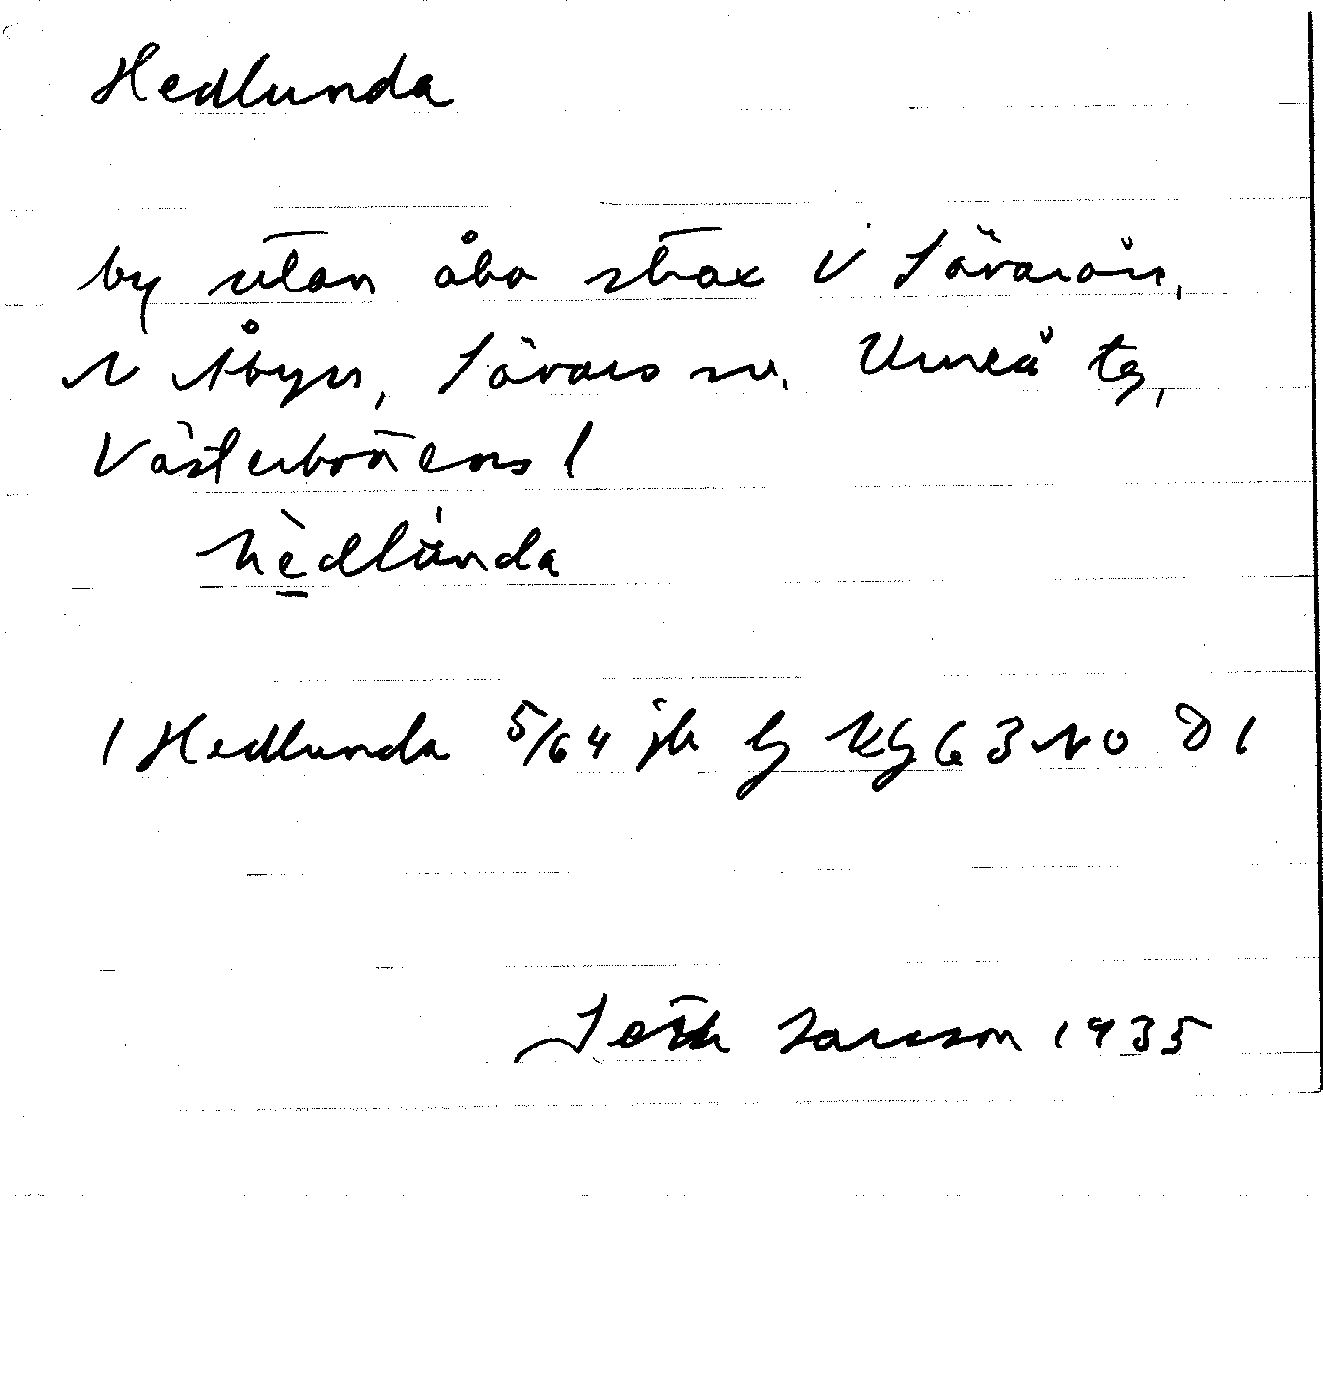 Hedlunda
by utan åbo strax V Sävarån,
N Åbyn, Sävars sn, Umeå tg,
Västerbottens l
hèdlúnda
1 Hedlunda 5/64 jb lg kg G 3 NO d 1
Seth Larsson 1935